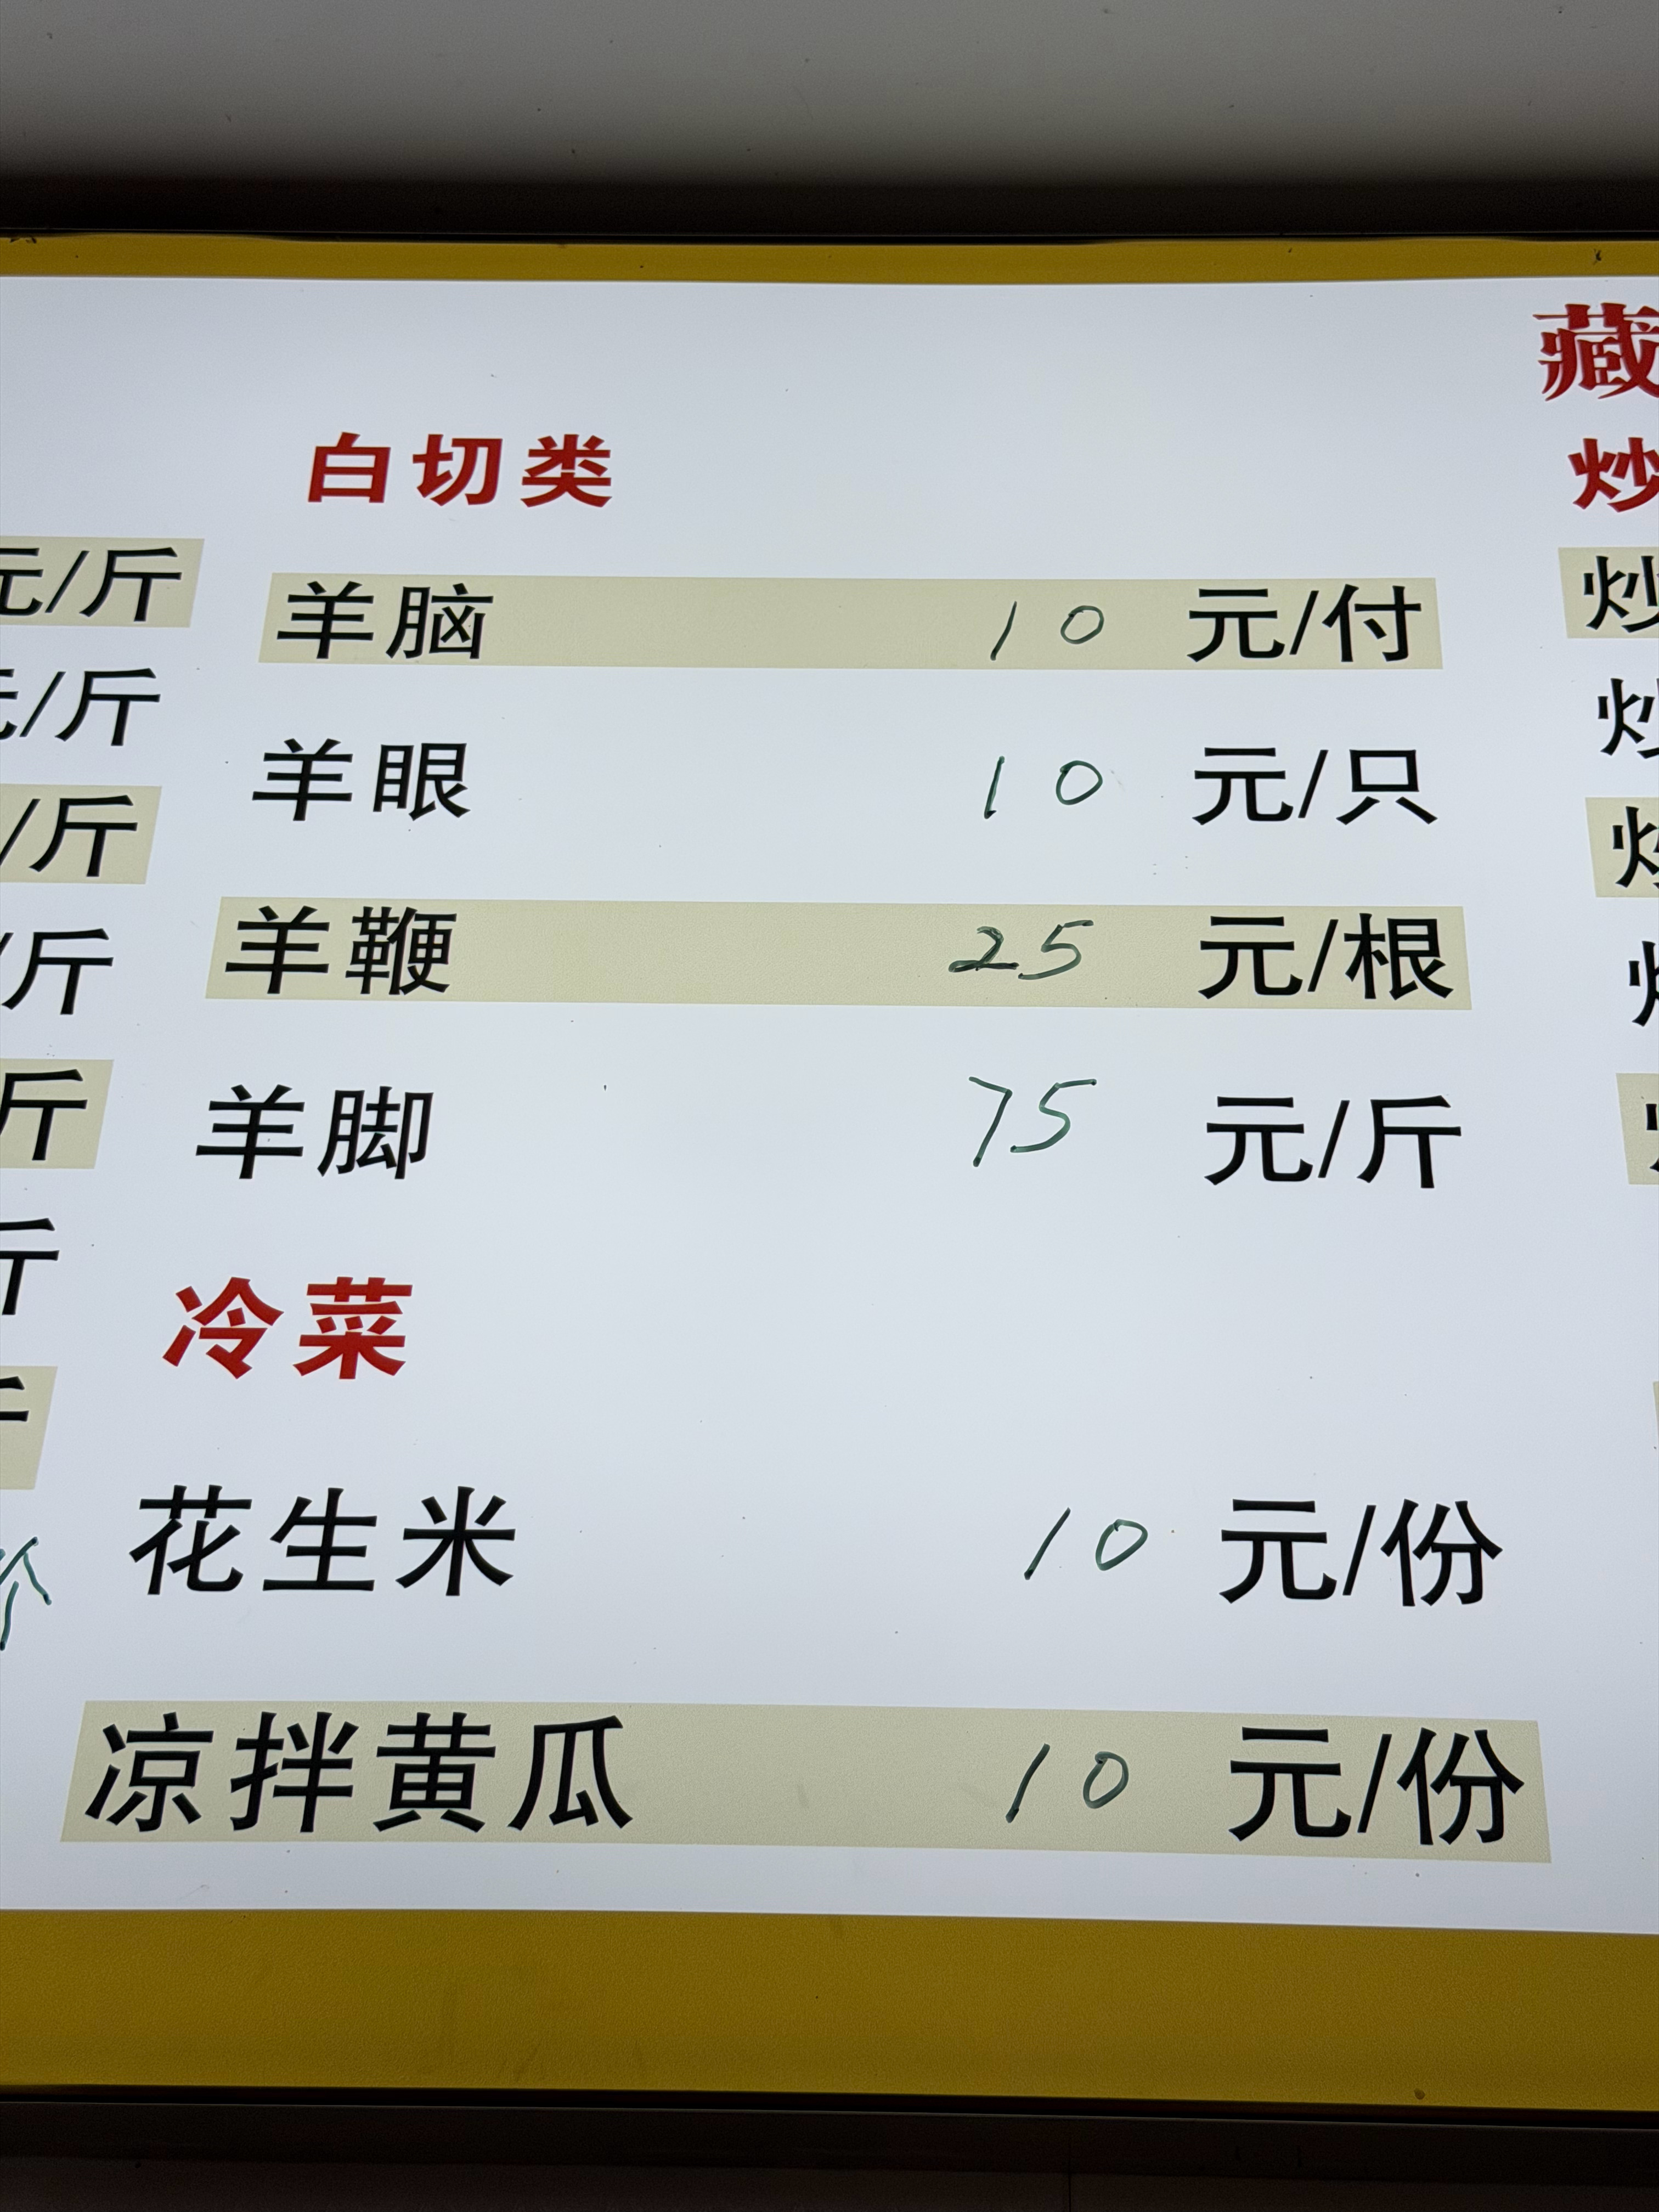 白切类
羊脑 10 元/付
羊眼 10 元/只
羊鞭 25 元/根
羊脚 75 元/斤
冷菜
花生米 10 元/份
凉拌黄瓜 10 元/份
元/斤
元/斤
/斤
/斤
斤
斤
个
藏
炒
炒
炒
炒